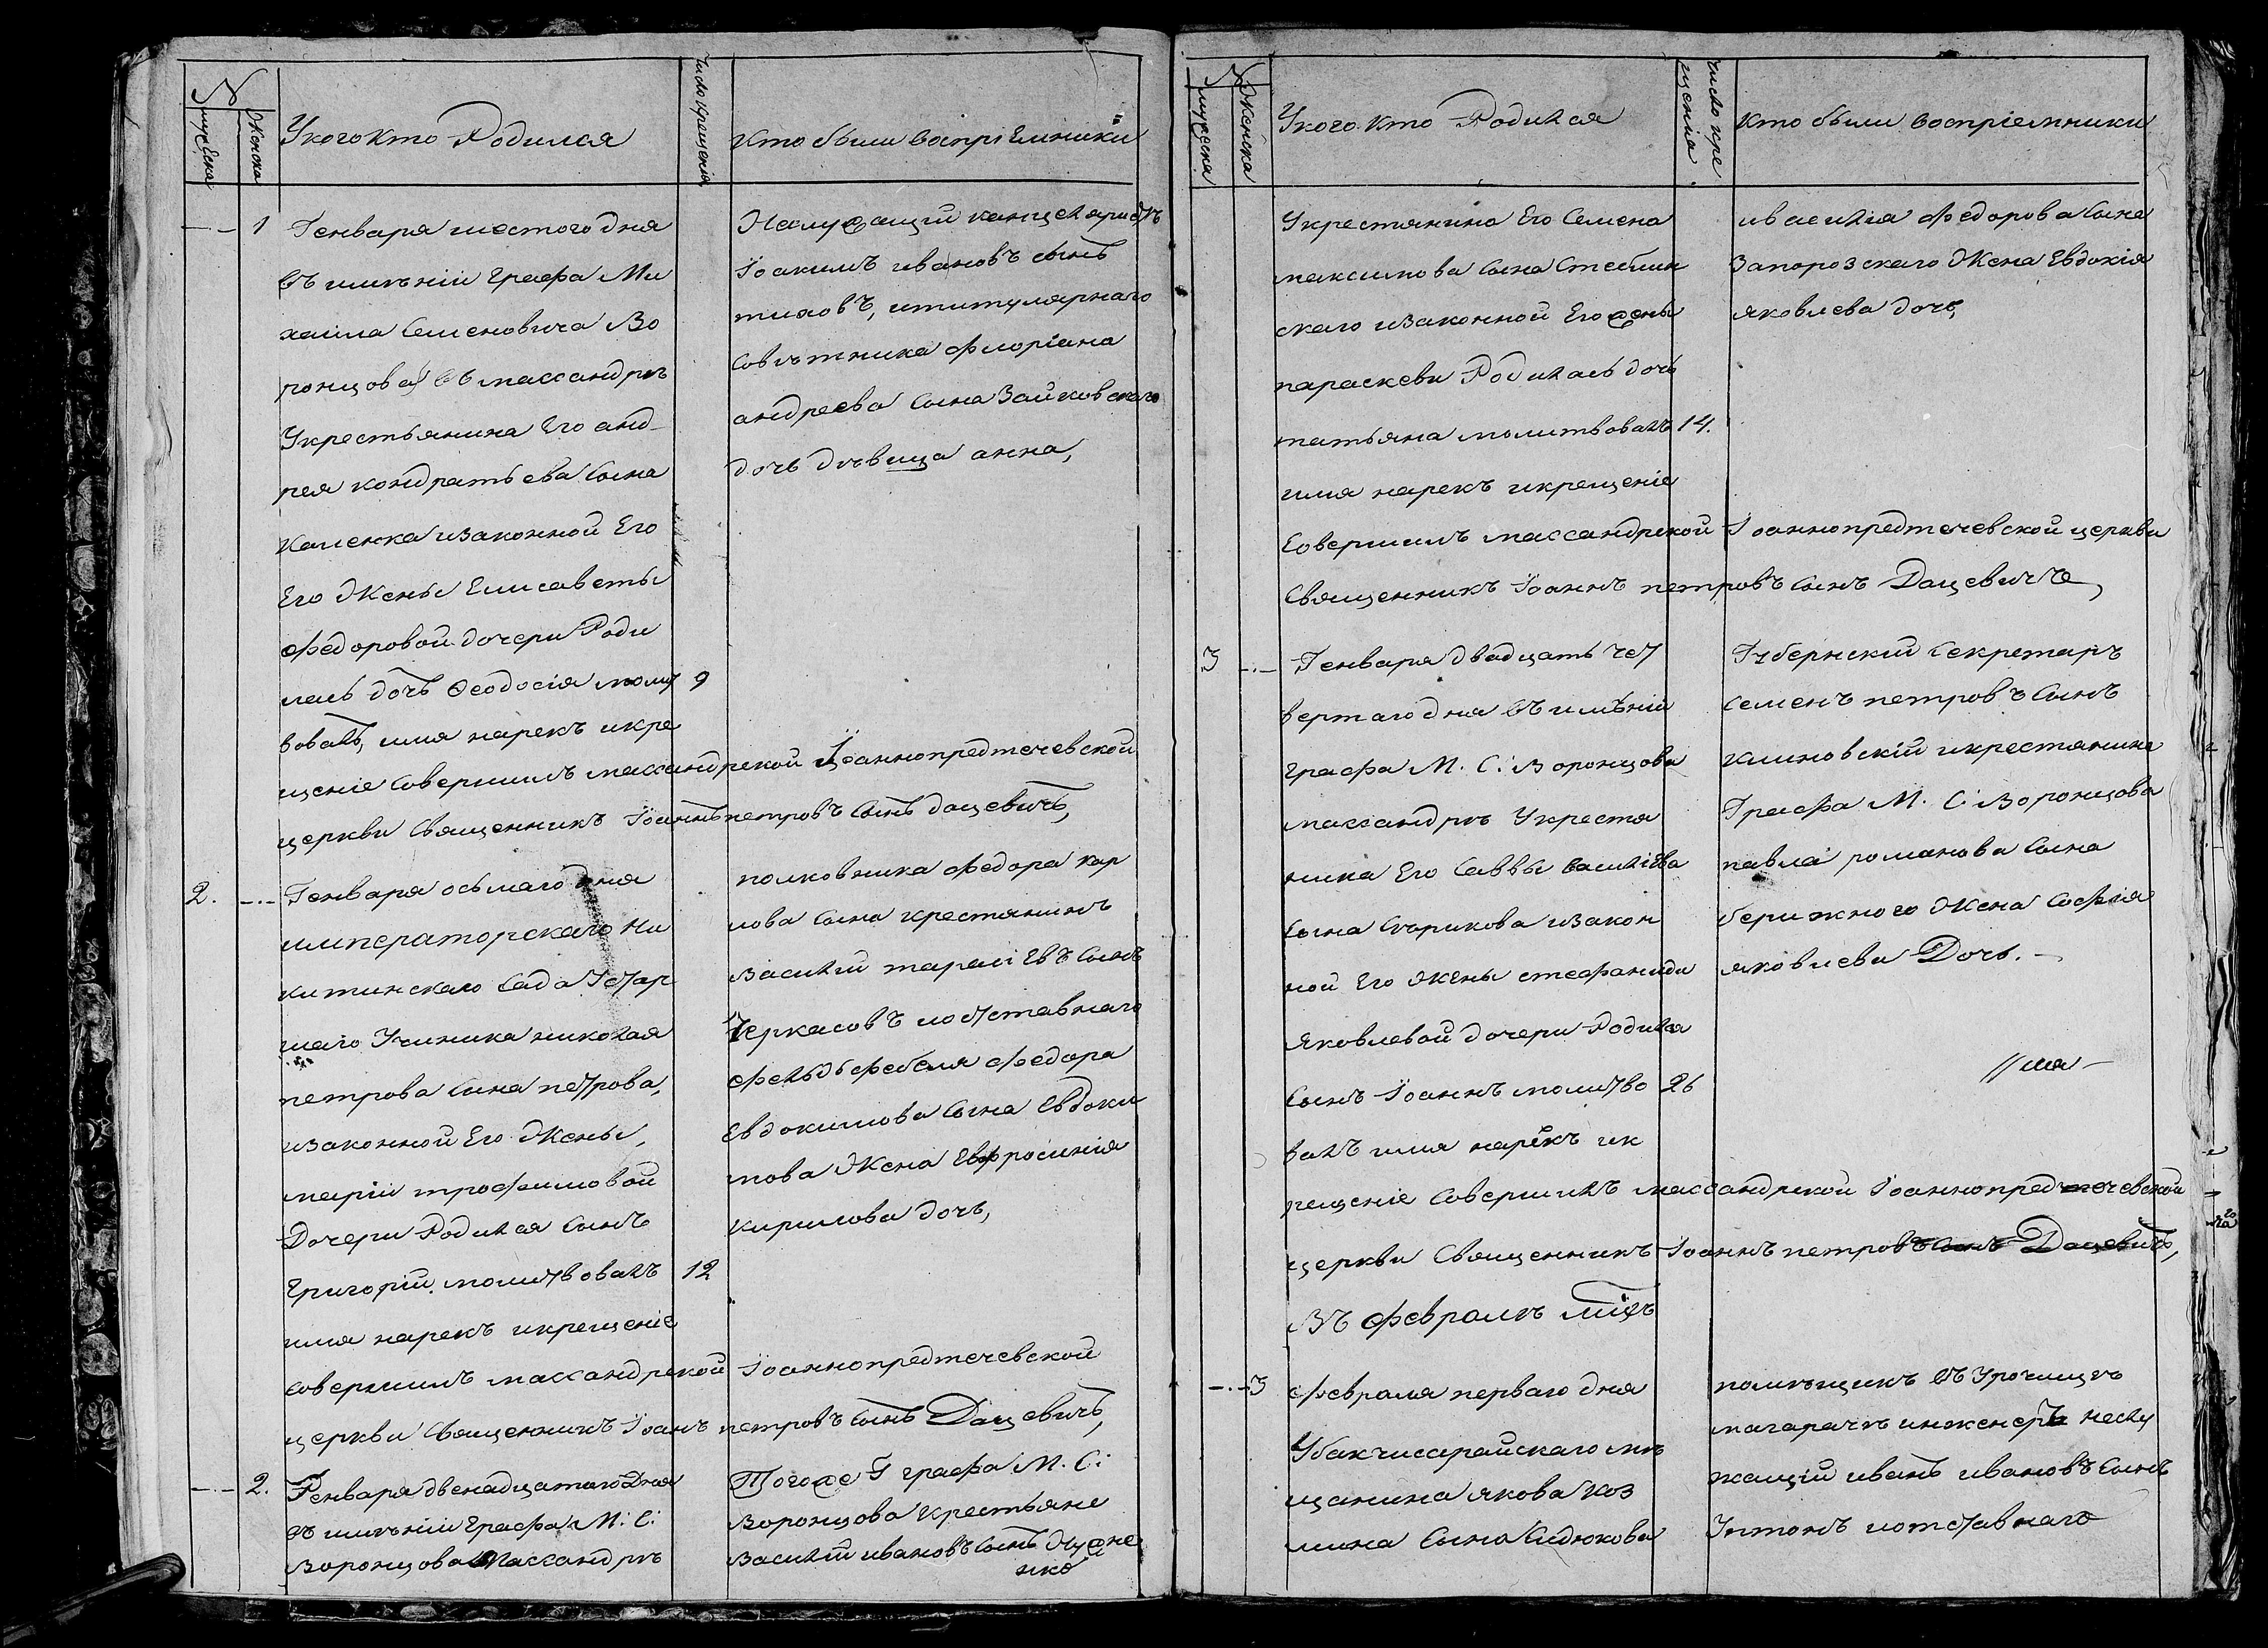 N
мужеска
женска
У кого кто Родился
число крещенія
кто были воспріемники
1 Генваря шестого дня
въ имѣніи Графа Ми
хаила Семеновича Во
ронцова въ массандрѣ
У крестьянина Его анд
рея кондратьева сына
изаконной Его
Его Жены Елисаветы
федоровой дочери Роди
лась дочь Феодосія молит 9
вовалъ, имя нарекъ икре
щеніе Совершилъ массандрской Іоаннопредтечевской
церкви Священникъ Іоаннъ петровъ сынъ дацевичъ,
канцеляристъ
Іоакимъ ивановъ сынъ
тиховъ, ититулярнаго
Совѣтника флоріана
андреева сына Зайковскаго
дочь дѣвица анна,
2. Генваря осьмаго дня
императорскаго Ни
китинскаго Сада Устар
шаго Ученика николая
петрова сына петрова,
изаконной Его Жены,
маріи трофимовой
Дочери Родился сынъ
Григорій молитвовалъ 12
имя нарекъ икрещеніе
совершилъ массандрской Іоаннопредтечевской
церкви Священникъ Іоанъ петровъ сынъ Дацевичъ,
полковника федора кар
лова сына крестянинъ
Василій тарасіевъ сынъ
Черкасовъ иотставнаго
фельдьфебеля федора
Евдокимова сына Евдоки
мова Жена Евфросинія
кирилова дочь,
2. Генваря двенадцатаго Дня
въ имѣніи Графа М: С:
Воронцова Массандрѣ
Тогоже Г графа М. С:
Воронцова крестьяне
Василій ивановъ сынъ
N
мужеска
женска
У кого кто Родился
число кре
щенія
кто были воспріемники
У крестянина Его Семена
максимова сына Стеблин
скаго изаконной Его жены
параскеви Родилась дочь
татьяна молитвовалъ 14.
имя нарекъ икрещеніе
Совершилъ массандрской Іоаннопредтечевской церкви
Священникъ Іоаннъ петровъ сынъ Дацевичъ,
ивасилія федорова сына
Запорозскаго Жена Евдокія
яковлева дочь,
3 Генваря двадцать чет
вертаго дня въ имѣніи
графа М. С. Воронцова
массандрѣ Укрестя
нина Его Саввы василіева
сына Старикова изакон
ной Его Жены стефаниди
Яковлевой дочери Родился
сынъ Іоаннъ молитво 26
валъ имя нарекъ ик
рещеніе Совершилъ массандрской Іоаннопредтечевской
церкви Священникъ Іоаннъ петровъ сынъ Дацевичъ,
Губернскій Секретарь
семенъ петровъ сынъ
Климовскій икрестянина
Графа М. С. Воронцова
павла романова сына
бережного Жена Софія
яковлева Дочь.
Въ февралѣ мцѣ
3 февраля перваго дня
Убакчисарайскаго мѣ
щанина якова коз
мина сына Сидюкова
помѣщикъ въ Урочищѣ
магарачѣ инженеръ неслу
жащій иванъ ивановъ сынъ
Уптонъ иотставнаго